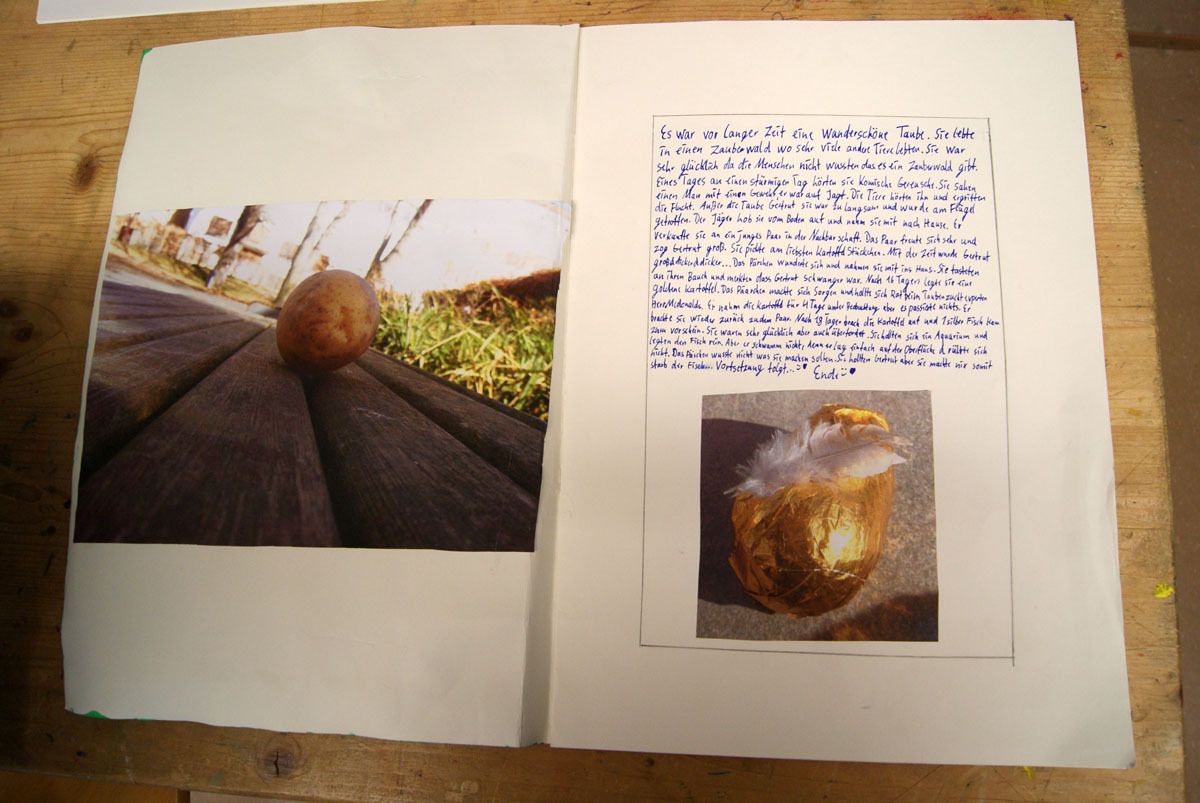 Es war vor langer Zeit eine wanderschöne Taube. Sie lebte
in einen Zauberwald wo sehr viele andere Tiere lebten. Sie war
sehr glücklich da die Menschen nicht wussten das es ein Zauberwald gibt.
Eines Tages an einen stürmigen Tag hörten sie Komische Gereusche. Sie sahen
einen Man mit einen Gewehr er war auf Jagt. Die Tiere hörten ihn und ergriffen
die Flucht. Außer die Taube Gertrut sie war zu langsam und wurde am Flügel
getroffen. Der Jäger hob sie vom Boden auf und nahm sie mit nach Hause. Er
verkaufte sie an ein junges Paar in der Nachbarschaft. Das Paar freute sich sehr und
zog Gertrut groß. Sie pickte am liebsten Kartoffel Stückchen. Mit der Zeit wurde Gertrut
dicker... Das Pärchen wunderte sich und nahmen sie mit ins Haus. Sie tasteten
an ihren Bauch und merkten dass Gertrut schwanger war. Nach 16 Tagen legte sie eine
goldene Kartoffel. Das Päarchen machte sich Sorgen und hollte sich Rat beim Taubenzucht experten
Herr Mcdonalds. Er nahm die Kartoffel für 4 Tage unter Beobachtung aber es passierte nichts. Er
brachte sie wieder zurück zu dem Paar. Nach 18 Tagen brach die Kartoffel auf und 1 silber Fisch kam
zum vorschein. Sie waren sehr glücklich aber auch überfordert. Sie hollten sich ein Aquarium und
legten den Fisch rein. Aber er schwamm nicht, denn er lag einfach auf der Oberfläche & rührte sich
nicht. Das Pärchen wusste nicht was sie machen sollten. Sie hollten Gertrut aber sie machte nix somit
starb der Fisch. Vortsetzung folgt... Ende